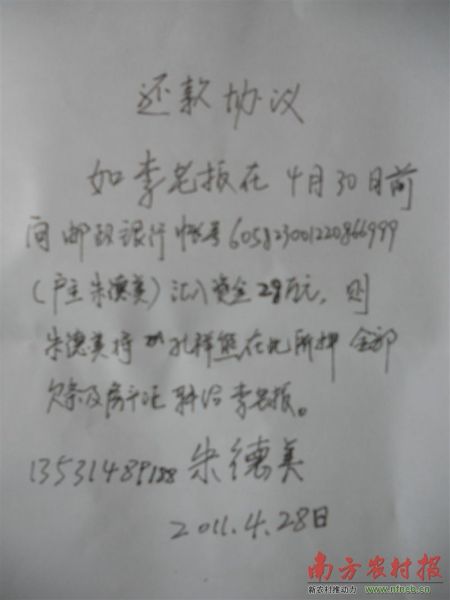 还款协议
如李老板在4月30日前
向邮政银行帐号605823001220866999
(户主朱德美)汇入资金28万元,则
朱德美将 孔祥熊在此所押全部
欠条及房产证 李老板。
13531489188 朱德美
2011.4.28日
南方农村报
新农村推动力 www.nfncb.cn